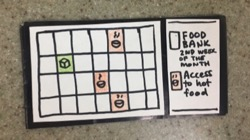 FOOD
BANK
2ND WEEK
OF THE
MONTH
Access
to hot
food